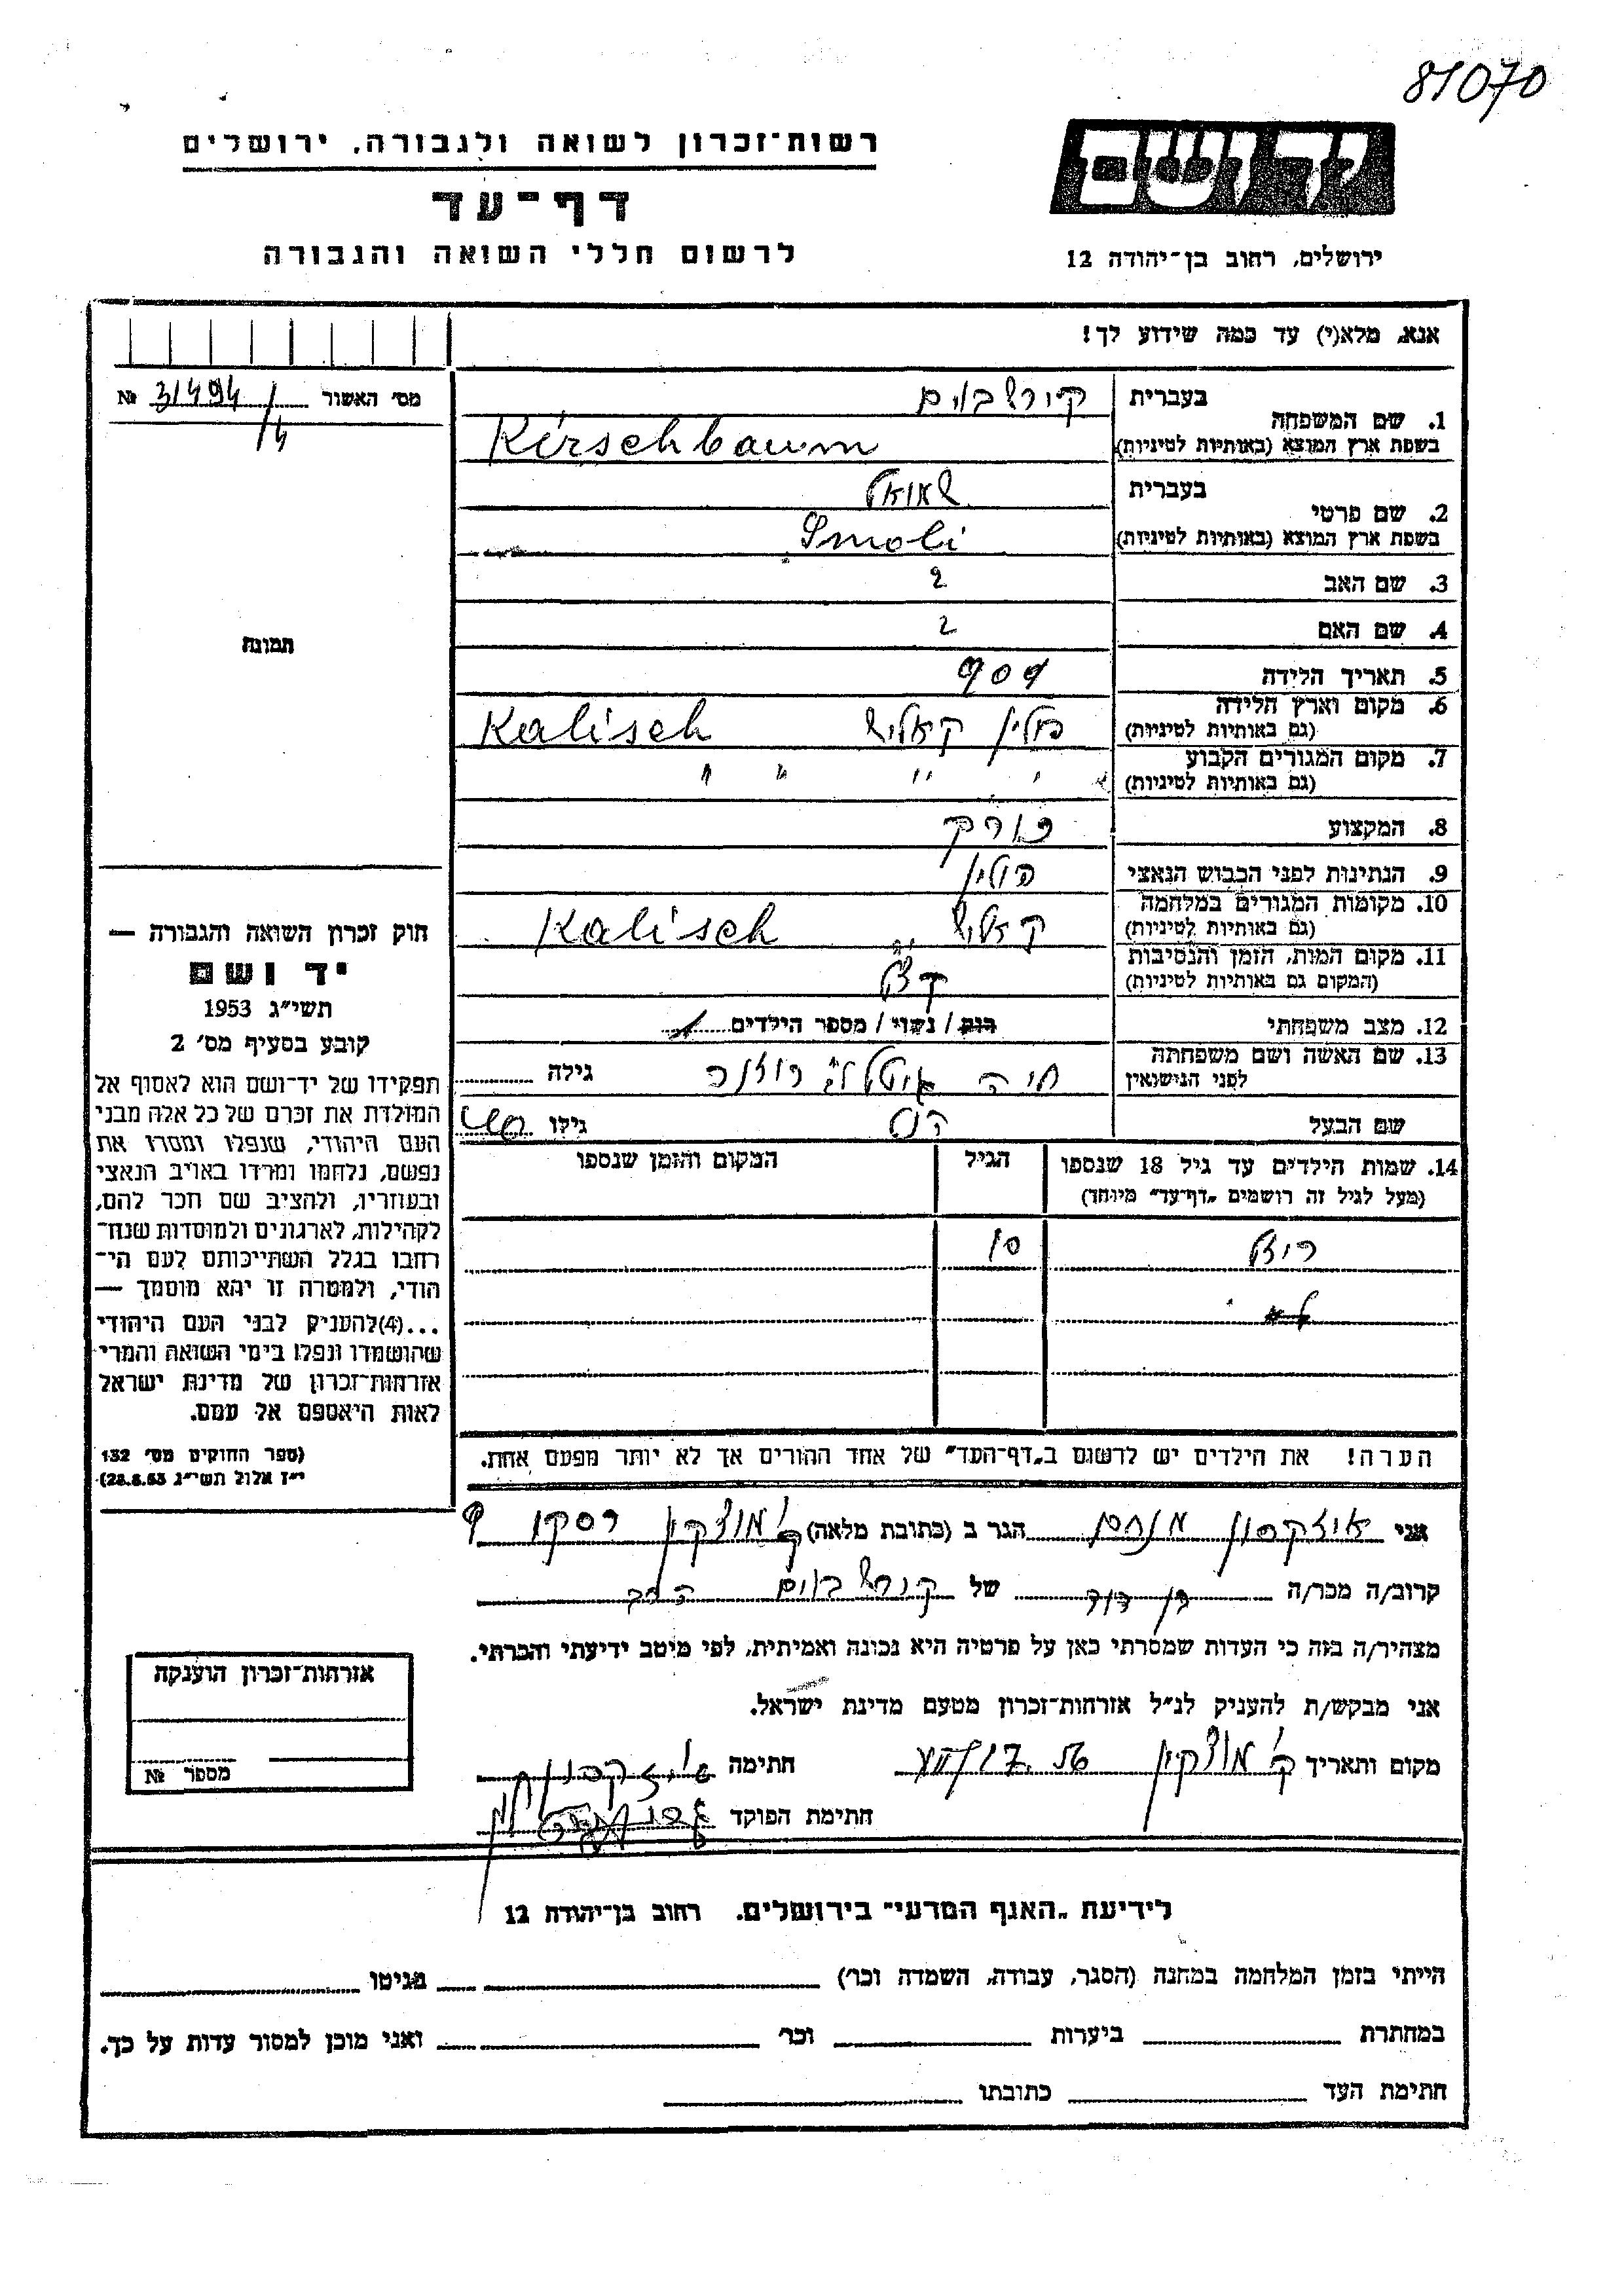 81070
רשות־זכרון לשואה ולגבורה, ירושלים
ידושם
דף־עד
לרשום חללי השואה והגבורה
ירושלים, רחוב בן־יהודה 12
אנא, מלא(י) עד כמה שידוע לך!
מס' האשור 31494/4 №
תמונה
1. שם המשפחה בעברית קירשבוים
בשפת ארץ המוצא (באותיות לטיניות) Kirschbaum
2. שם פרטי בעברית
בשפת ארץ המוצא (באותיות לטיניות) Smoli
3. שם האב ?
4. שם האם ?
5. תאריך הלידה 909
6. מקום וארץ הלידה פולין קאליש Kalisch
(גם באותיות לטיניות)
7. מקום המגורים הקבוע " " " "
(גם באותיות לטיניות)
8. המקצוע
9. הנתינות לפני הכבוש הנאצי פולין
10. מקומות המגורים במלחמה קאליש Kalisch
(גם באותיות לטיניות)
11. מקום המות, הזמן והנסיבות
(המקום גם באותיות לטיניות)
12. מצב משפחתי רוק / נשוי / מספר הילדים 1
13. שם האשה ושם משפחתה חיה גילה
לפני הנישואין
שם הבעל גילו
14. שמות הילדים עד גיל 18 שנספו הגיל המקום והזמן שנספו
(מעל לגיל זה רושמים "דף־עד" מיוחד)
רוזל 10
הערה! את הילדים יש לרשום ב"דף־העד" של אחד ההורים אך לא יותר מפעם אחת.
חוק זכרון השואה והגבורה —
יד ושם
תשי"ג 1953
קובע בסעיף מס' 2
תפקידו של יד־ושם הוא לאסוף אל
המולדת את זכרם של כל אלה מבני
העם היהודי, שנפלו ומסרו את
נפשם, נלחמו ומרדו באויב הנאצי
ובעוזריו, ולהציב שם וזכר להם,
לקהילות, לארגונים ולמוסדות שנח־
רבו בגלל השתייכותם לעם הי־
הודי, ולמטרה זו יהא מוסמך —
...(4) להעניק לבני העם היהודי
שהושמדו ונפלו בימי השואה והמרי
אזרחות־זכרון של מדינת ישראל
לאות היאספם אל עמם.
(ספר החוקים מס' 132
י"ז אלול תשי"ג 28.8.53)
אני איזקסון מנחם הגר ב (כתובת מלאה) ק' מוצקין רסקו 9
קרוב/ה מכר/ה בן דוד של קירשבוים
מצהיר/ה בזה כי העדות שמסרתי כאן על פרטיה היא נכונה ואמיתית, לפי מיטב ידיעתי והכרתי.
אני מבקש/ת להעניק לנ"ל אזרחות־זכרון מטעם מדינת ישראל.
מקום ותאריך ק' מוצקין חתימה
חתימת הפוקד
אזרחות־זכרון הוענקה
מספר №
לידיעת "האגף המדעי" בירושלים. רחוב בן־יהודה 12
הייתי בזמן המלחמה במחנה (הסגר, עבודה, השמדה וכו') בגיטו
במחתרת ביערות וכו' ואני מוכן למסור עדות על כך.
חתימת העד כתובתו